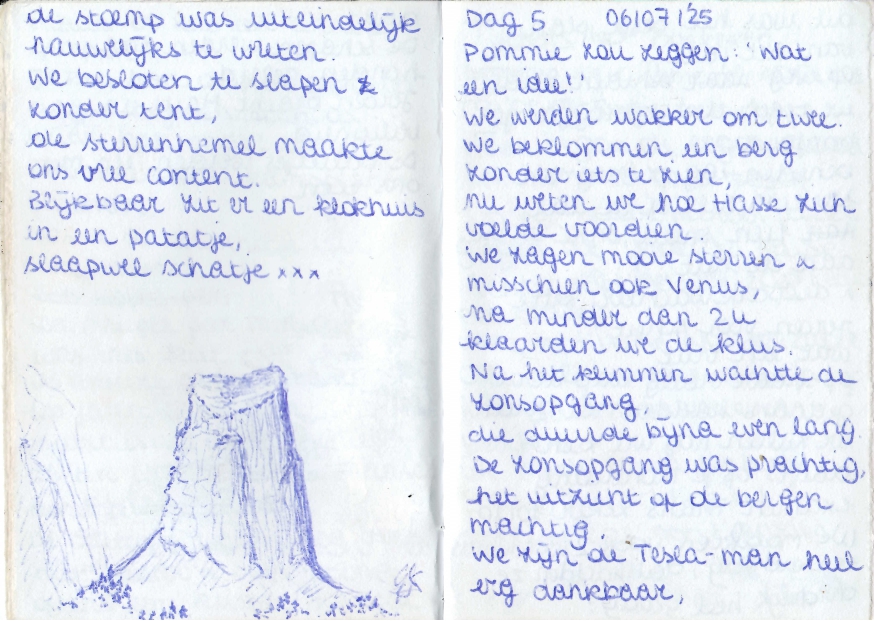 de stoemp was uiteindelijk
nauwelijks te vreten.
We besloten te slapen
zonder tent,
de sterrenhemel maakte
ons vree content.
Blijkbaar zit er een klokhuis
in een patatje,
slaapwel schatje xxx
Dag 5 06/07/'25
Pommie zou zeggen: "Wat
een idee!"
We werden wakker om twee.
We beklommen een berg
zonder iets te zien,
nu weten we hoe Hasse zich
voelde voordien
We zagen mooie sterren &
misschien ook Venus,
na minder dan 2u
klaarden we de klus.
Na het klimmen wachtte de
zonsopgang
die duurde bijna even lang
De zonsopgang was prachtig,
het uitzicht op de bergen
machtig
We zijn de Tesla-man heel
erg dankbaar,